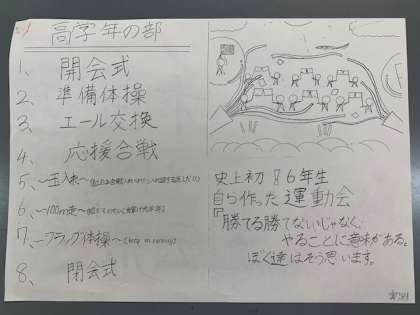 高学年の部
1、開会式
2、準備体操
3、エール交換
4、応援合戦
5、〜玉入れ〜
6、〜100m走〜
7、〜フラッグ体操〜(keep on running)
8、閉会式
史上初！6年生
自ら作った運動会
『勝てる勝てないじゃなく
やることに意味がある。
ぼく達はそう思います。